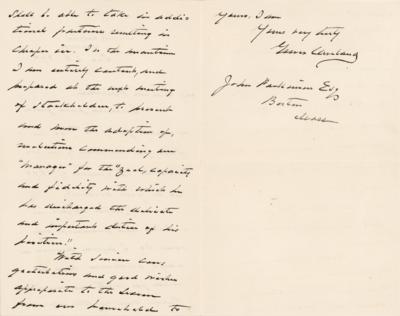 shall be able to take in addi-
tional pasture resulting in
cheaper ice. In the meantime
I am entirely content, and
prepared at the next meeting
of Stockholders, to present
and move the adoption of,
resolutions commending our
"manager" for the "zeal, capacity
and fidelity with which he
has discharged the delicate
and important duties of his
position!!"
With sincere con-
gratulations and good wishes
appropriate to the Season
from our household to
yours, I am
Yours very truly
Grover Cleveland
John Parkinson Esq
Boston
Mass